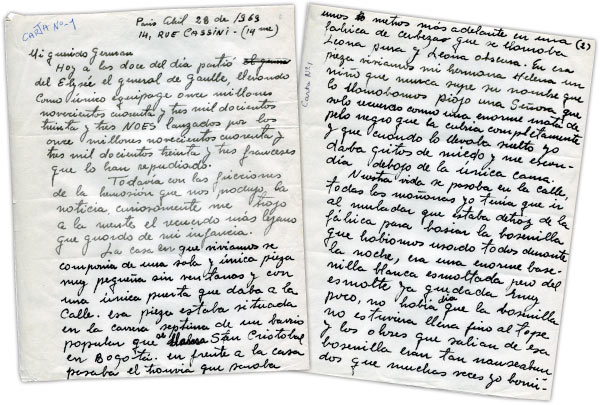 CARTA Nº-1
Paris Abril 28 de 1969
14, RUE CASSINI - (14 me)
Mi querido German
Hoy a las doce del dia partió
del Elysée el general de Gaulle, llevando
como único equipage once millones
novecientos cuarenta y tres mil docientos
treinta y tres NOES lanzados por los
once millones novecientos cuarenta y
tres mil docientos treinta y tres franceses
que lo han repudiado.
Todavia con las
de la que nos produjo la
noticia, curiosamente me trajo
a la mente el recuerdo más lejano
que guardo de mi infancia.
La casa en que viviamos se
componia de una sola y única pieza
muy pequeña sin ventanas y con
una única puerta que daba a la
calle. esa pieza estaba situada
en la carrera septima de un barrio
popular que se San Cristobal
en Bogotá. en frente a la casa
pasaba el tranvia que paraba
Carta Nº1
(2)
unos metros más adelante en una
fábrica de cerbeza que se llamaba
Leona pura y Leona obscura. En esa
pieza viviamos mi hermana Helena un
niño que nunca supe su nombre que
lo llamabamos piojo una Señora que
solo recuerdo como una enorme mata de
pelo negro que la cubria completamente
y que cuando lo llevaba suelto yo
daba gritos de miedo y me escon-
dia debajo de la única cama.
Nuestra vida se pasaba en la calle,
todas las mañanas yo tenia que ir
al muladar que estaba detraz de la
fábrica para basiar la basenilla
que habiamos usado todos durante
la noche, era una enorme base-
nilla blanca esmaltada pero del
esmalte ya quedaba muy
poco, no habia dia que la basenilla
no estuviera llena fino al tope
y los olores que salian de esa
basenilla eran tan nauseabun
dos que muchas veces yo bomi-